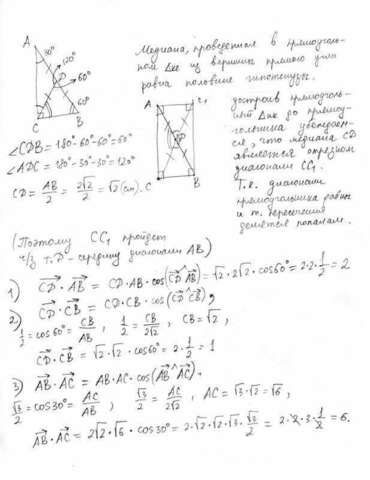 A
30°
120°
D
60°
60°
C
B
Медиана, проведенная в прямоуголь-
ном Δке из вершины прямого угла
равна половине гипотенузы.
A
C₁
D
C
B
достроив прямоуголь-
ный Δник до прямоу-
гольника убеждаем-
ся, что медиана CD
является отрезком
диагонали CC₁.
Т.к. диагонали
прямоугольника равны
и т. пересечения
делятся пополам.
∠CDB = 180°-60°-60°=60°
∠ADC = 180°-30°-30°=120°
CD = AB/2 = 2√2/2 = √2 (см).
(Поэтому CC₁ пройдет
ч/з т. D - середину диагонали AB)
1) CD · AB = CD·AB·cos(CD^AB) = √2·2√2·cos60° = 2·2·1/2 = 2
2) CD · CB = CD·CB·cos(CD^CB),
1/2 = cos60° = CB/AB, 1/2 = CB/2√2, CB=√2,
CD · CB = √2·√2·cos60° = 2·1/2 = 1
3) AB · AC = AB·AC·cos(AB^AC).
√3/2 = cos30° = AC/AB, √3/2 = AC/2√2, AC = √3·√2 = √6,
AB · AC = 2√2·√6·cos30° = 2·√2·√2·√3·√3/2 = 2·2·3·1/2 = 6.